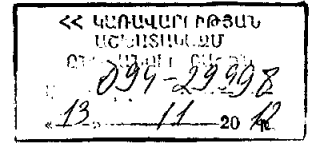 << ԿԱՌԱՎԱՐՈՒԹՅԱՆ
ԱՇԽԱՏԱԿԱԶՄ
099-29998
«13» 11 2012